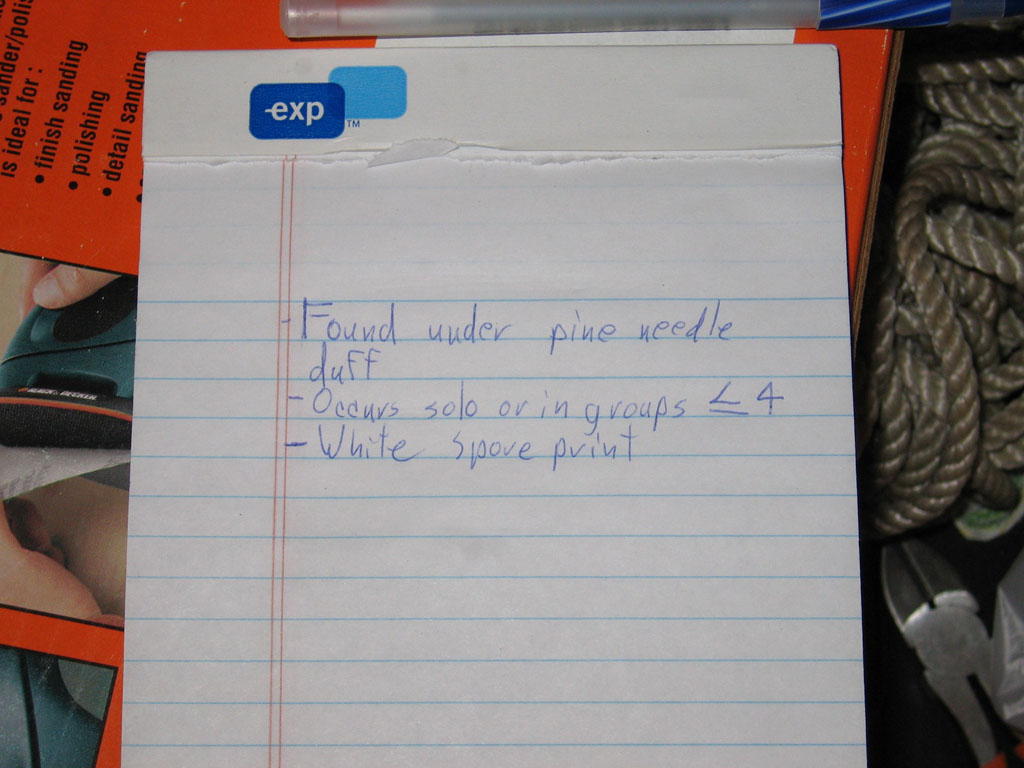 sander/polis
is ideal for :
• finish sanding
• polishing
• detail sanding
-exp
TM
- Found under pine needle
duff
- Occurs solo or in groups ≤ 4
- White spore print
BLACK & DECKER